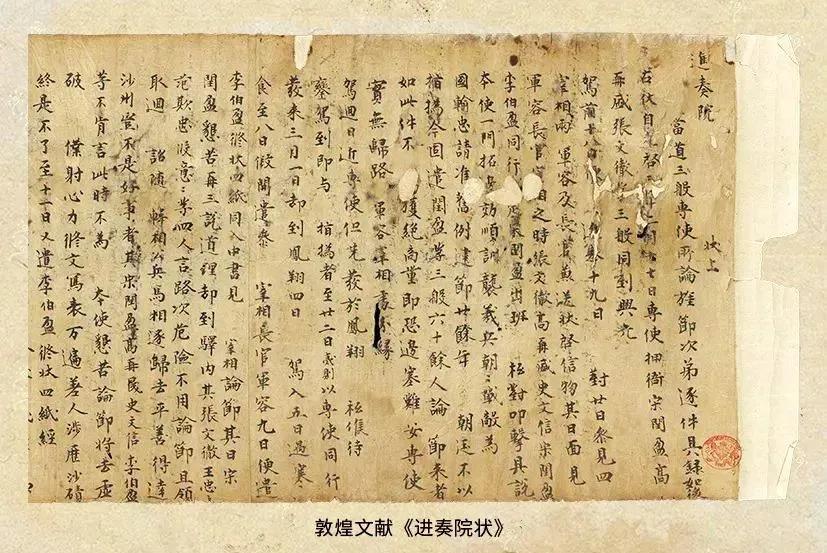 進奏院 狀上
當道三般專使所論旌節次第逐件具錄如後
右伏自光啓三年二月十七日專使押衙宋閏盈高
再盛張文徹等三般同到興元
駕前十八日 進奉十九日 對廿日參見四
宰相兩軍容及長官兼送狀啓信物其日面見
軍容長官宰相之時張文徹高再盛史文信宋閏盈
李伯盈同行 定宋閏盈出班祗對叩擊具說
本使一門拓邊効順訓襲義兵朝朝戰敵為
國輸忠請准舊例建節廿餘年 朝廷不以
指撝今因遣閏盈等三般六十餘人論節來者
如此件不 獲絕商量即恐邊塞難安專使
實無歸路 軍容宰相處分緣
駕迴日近專使但先發於鳳翔祗候待
鑾駕到即與 指撝者至廿二日夷則以專使同行
發來三月一日却到鳳翔四日 駕入五日遇寒
食至八日假開遣參 宰相長官軍容九日便遣
李伯盈修狀四紙同入中書見 宰相論節其日宋
閏盈懇苦再三說道理却到驛內其張文徹王忠忠
范欺忠段意意等四人言路次危險不用論節且領
取迴 詔隨韓相公兵馬相逐歸去平善得達
沙州豈不是好事者其宋閏盈高再晟史文信李伯盈
等不肯言此時不為 本使懇苦論節將去虛
破 僕射心力修文寫表万遍差人涉歷沙磧
終是不了至十一日又遣李伯盈修狀四紙經
敦煌文献《进奏院状》